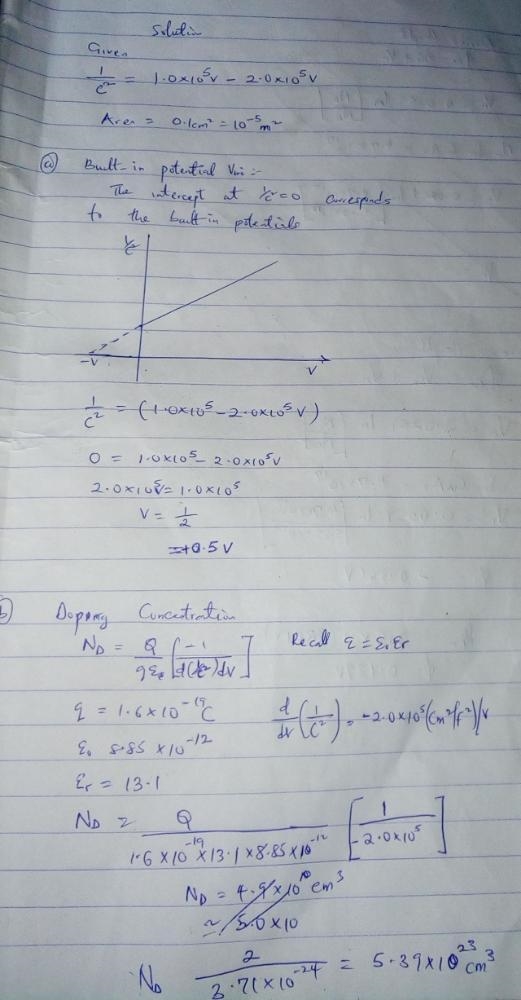 Solution
Given
1/C² = 1.0×10⁵V − 2.0×10⁵V
Area = 0.1cm² = 10⁻⁵m²
(a) Built-in potential Vbi :-
The intercept at 1/C²=0 corresponds
to the built in potentials
1/C²
-V
V
1/C² = (1.0×10⁵ − 2.0×10⁵ V)
0 = 1.0×10⁵ − 2.0×10⁵V
2.0×10⁵V = 1.0×10⁵
V = 1/2
= +0.5 V
b) Doping Concentration
N_D = Q/qε₀ [−1/d(1/C²)/dV] Recall ε = ε₀εr
q = 1.6×10⁻¹⁹C d/dV (1/C²) = −2.0×10⁵ (cm²/F²)/V
ε₀ 8.85 ×10⁻¹²
εr = 13.1
N_D = Q/1.6×10⁻¹⁹×13.1×8.85×10⁻¹² [1/−2.0×10⁵]
N_D = 4.9×10¹⁰ cm³
≈ 5.0×10
N_D 2/3.71×10⁻²⁴ = 5.39×10²³ cm³